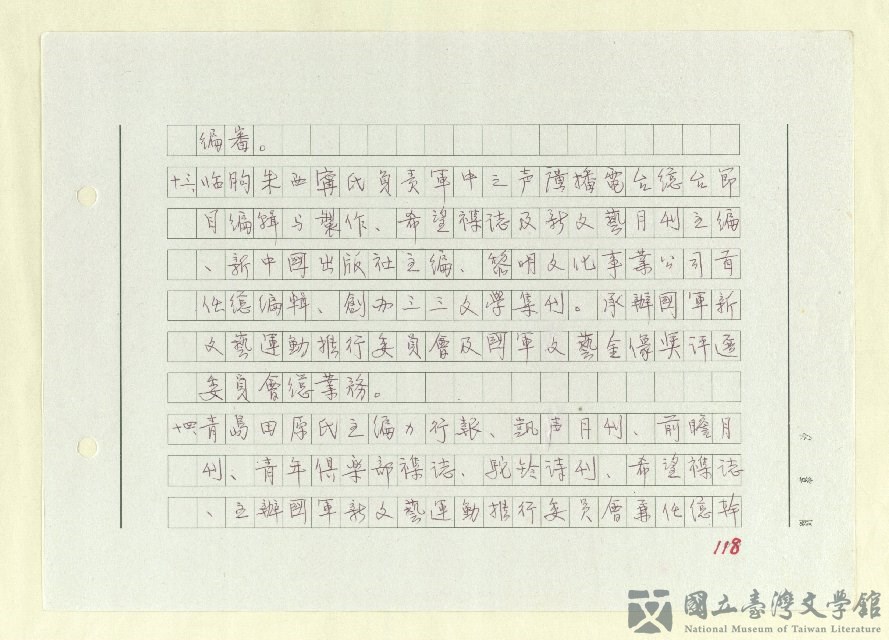 編審。
十三、臨朐朱西甯氏負責軍中之声廣播電台總台節
目編輯与製作、希望襍誌及新文藝月刊主編
、新中國出版社主編、黎明文化事業公司首
任總編輯、創办三三文學集刊。承辦國軍新
文藝運動推行委員會及國軍文藝金像奖评選
委員會總業務。
十四、青島田原氏主編力行報、凱声月刊、前瞻月
刊、青年俱樂部襍誌、駝铃诗刊、希望襍誌
、主辦國軍新文藝運動推行委員會兼任總幹
118
國立臺灣文學館
National Museum of Taiwan Literature